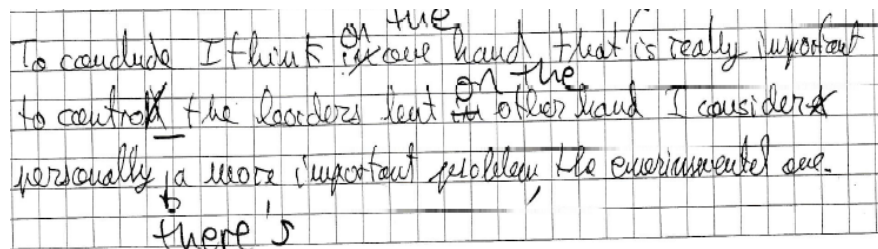 on the
To conclude I think in one hand, that is really important
on the
to control the boorders but in other hand I consider
personally a more important problem, the enverinmentel one.
there's